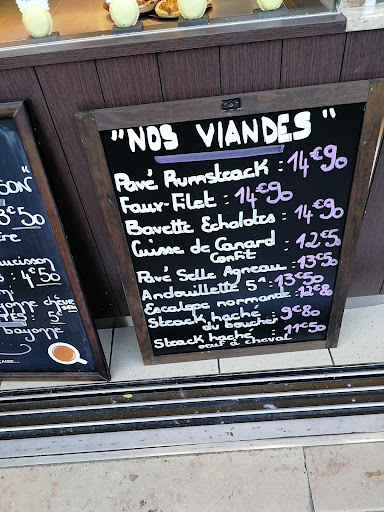 "NOS VIANDES"
Pavé Rumsteack : 14€90
Faux-Filet : 14€90
Bavette Echalotes : 14€90
Cuisse de Canard : 12€50
Confit
Pavé Selle Agneau : 13€50
Andouillette 5A : 13€50
Escalope normande : 12€80
Steack haché : 9€80
du boucher
Steack haché : 11€50
oeuf à cheval
SON"
3€50
saucisson
4€50
CHÈVRE
5€